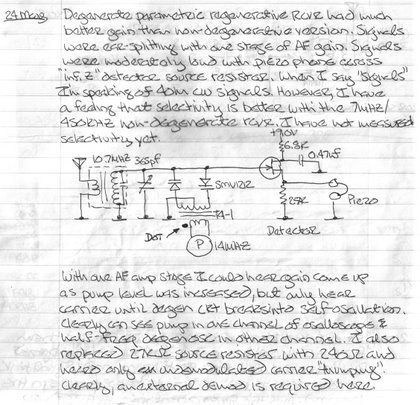 24 Mag
Degenerate parametric regenerative Rcvr had much
better gain than non-degenerative version. Signals
were ear-splitting with one stage of AF gain. Signals
were moderately loud with piezo phone across
"inf. Z" detector source resistor. When I say "signals"
I'm speaking of 40m CW signals. However, I have
a feeling that selectivity is better with the 7MHz/
450KHz non-degenerate rcvr. I have not measured
selectivity yet.
+9.0V
6.8K
0.47uf
10.7MHz 365pf
SMV122
T4-1
DOT
P 14MHz
27K
Piezo
Detector
With one AF amp stage I could hear gain come up
as pump level was increased, but only hear
carrier until degen ckt breaks into self-oscillation.
Clearly can see pump in one channel of oscilloscope &
half-freq degen osc in other channel. I also
replaced 27K source resistor with 240Ω and
heard only an undemodulated carrier "thumping"
clearly, an external demod is required here.